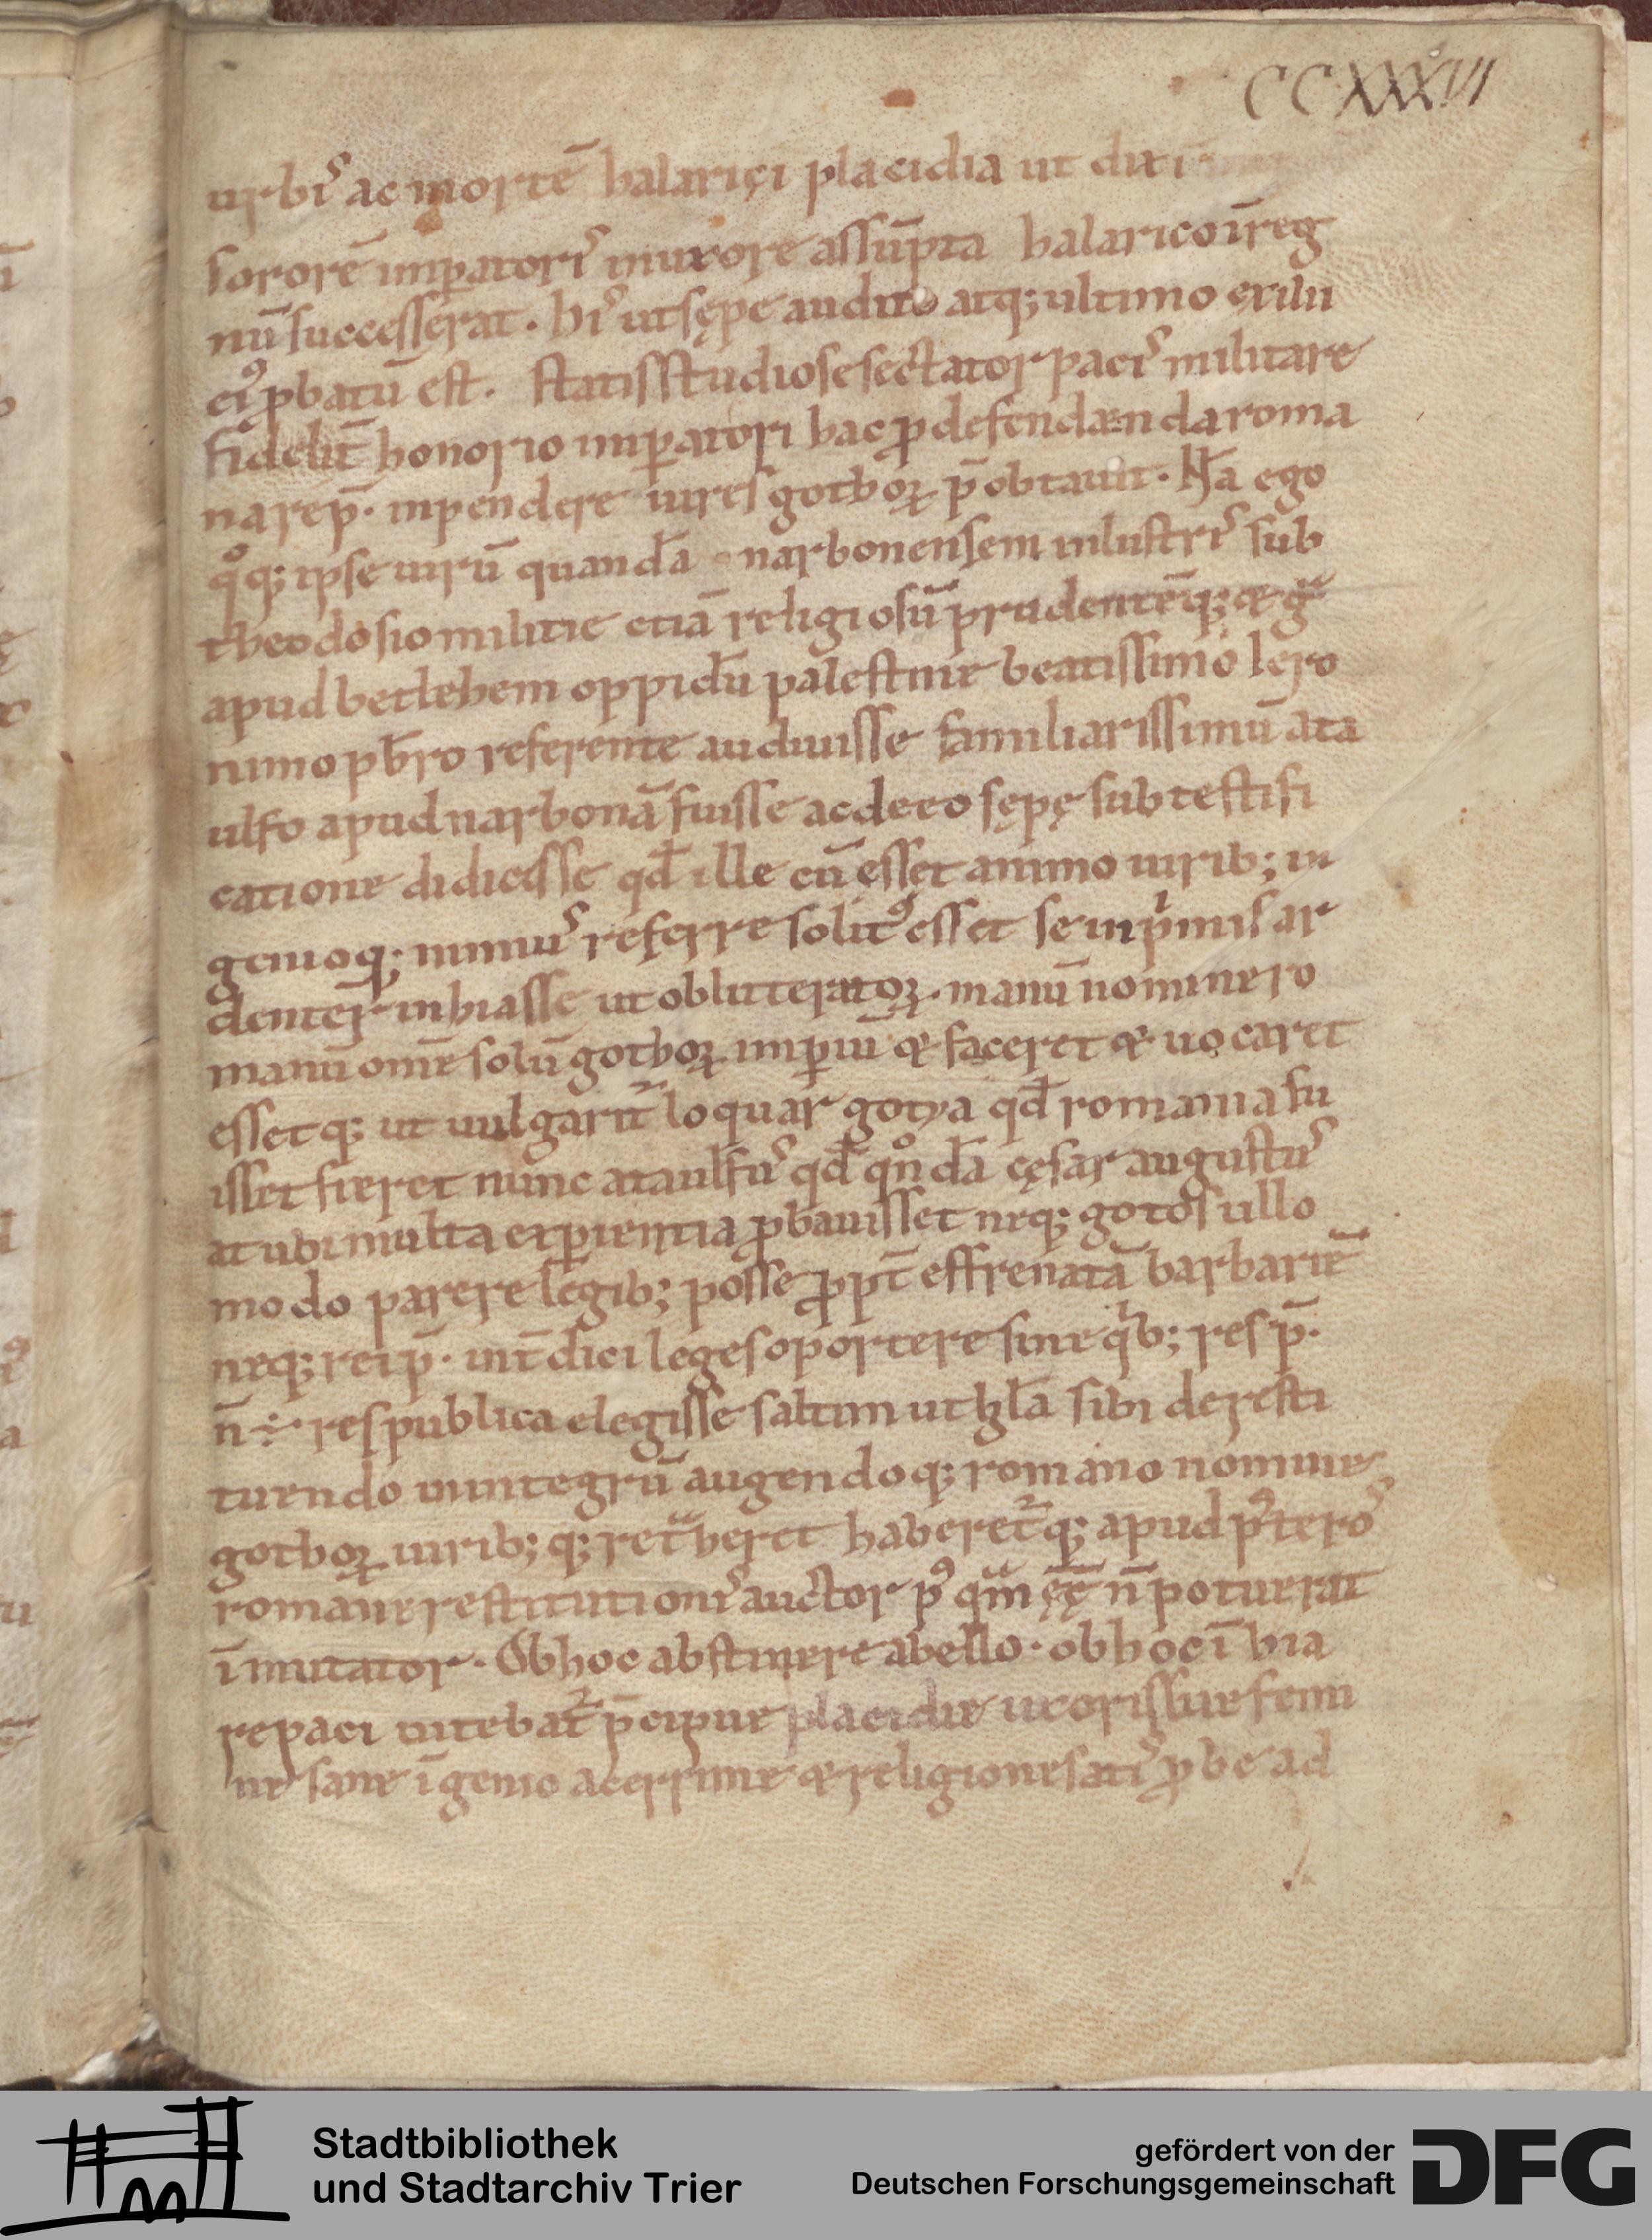 CCXXXVI
urbis ac mortē halarici placidia ut dixi
sororē imꝑatoris inuxore assūpta halarico īreg
nū successerat. his ut sępe auditū atq; ultimo exitu
eiꝰ ꝓbatū est. statis studiose sectator pacis militare
fidelit̄ honorio imꝑatori hac ꝓ defendænda roma
na rep̄. inpendere uires gothoꝝ p̄obtauit. Nā ego
qͦq; ipse uirū quandā narbonensem inlustris sub
theodosio militie etiā religiosū prudentēq; & gͣ
apud betlehem oppidū palestine beatissimo iero
nimo pb̄ro referente audiuisse familiarissimū ata
ulfo apud narbonā fuisse ac de eo sępę sub testifi
catione didicisse qđ ille cū esset animo uirib; in
genioq; nimius referre solitꝰ esset se inpͥmis ar
denter inhiasse ut obliteratoꝝ. manū nomine ro
manū omē solū gothoꝝ imꝑiū & faceret & uocaret
essetq; ut uulgarit̄ loquar gotya qđ romania fu
isset fieret nunc ataulfus qđ qͦndā cęsar augustus
at ubi multa exꝑientia ꝓbauisset neq; gotos ullo
modo parere legib; posse ꝓpt̄ effrenatā barbariē
neq; rei p̄. int̄dici leges oportere sine qͥb; res p̄.
n̄ ÷ respublica elegisse saltim ut gl̄a sibi de resti
tuendo inintegrū augendoq; romano nomine
gothoꝝ uirib; q;reret haberetq; apud posteros
romane restitutionis auctor pꝰ qͣm ęę n̄ potuerat
īmutator. Ob hoc abstinere a bello. ob hoc ī hia
re paci nitebat̄ p̄cipue placidie uxoris sue femi
ne sane ī genio acerrime & religione satis ꝓbe ad
Stadtbibliothek
und Stadtarchiv Trier
gefördert von der
Deutschen Forschungsgemeinschaft
DFG